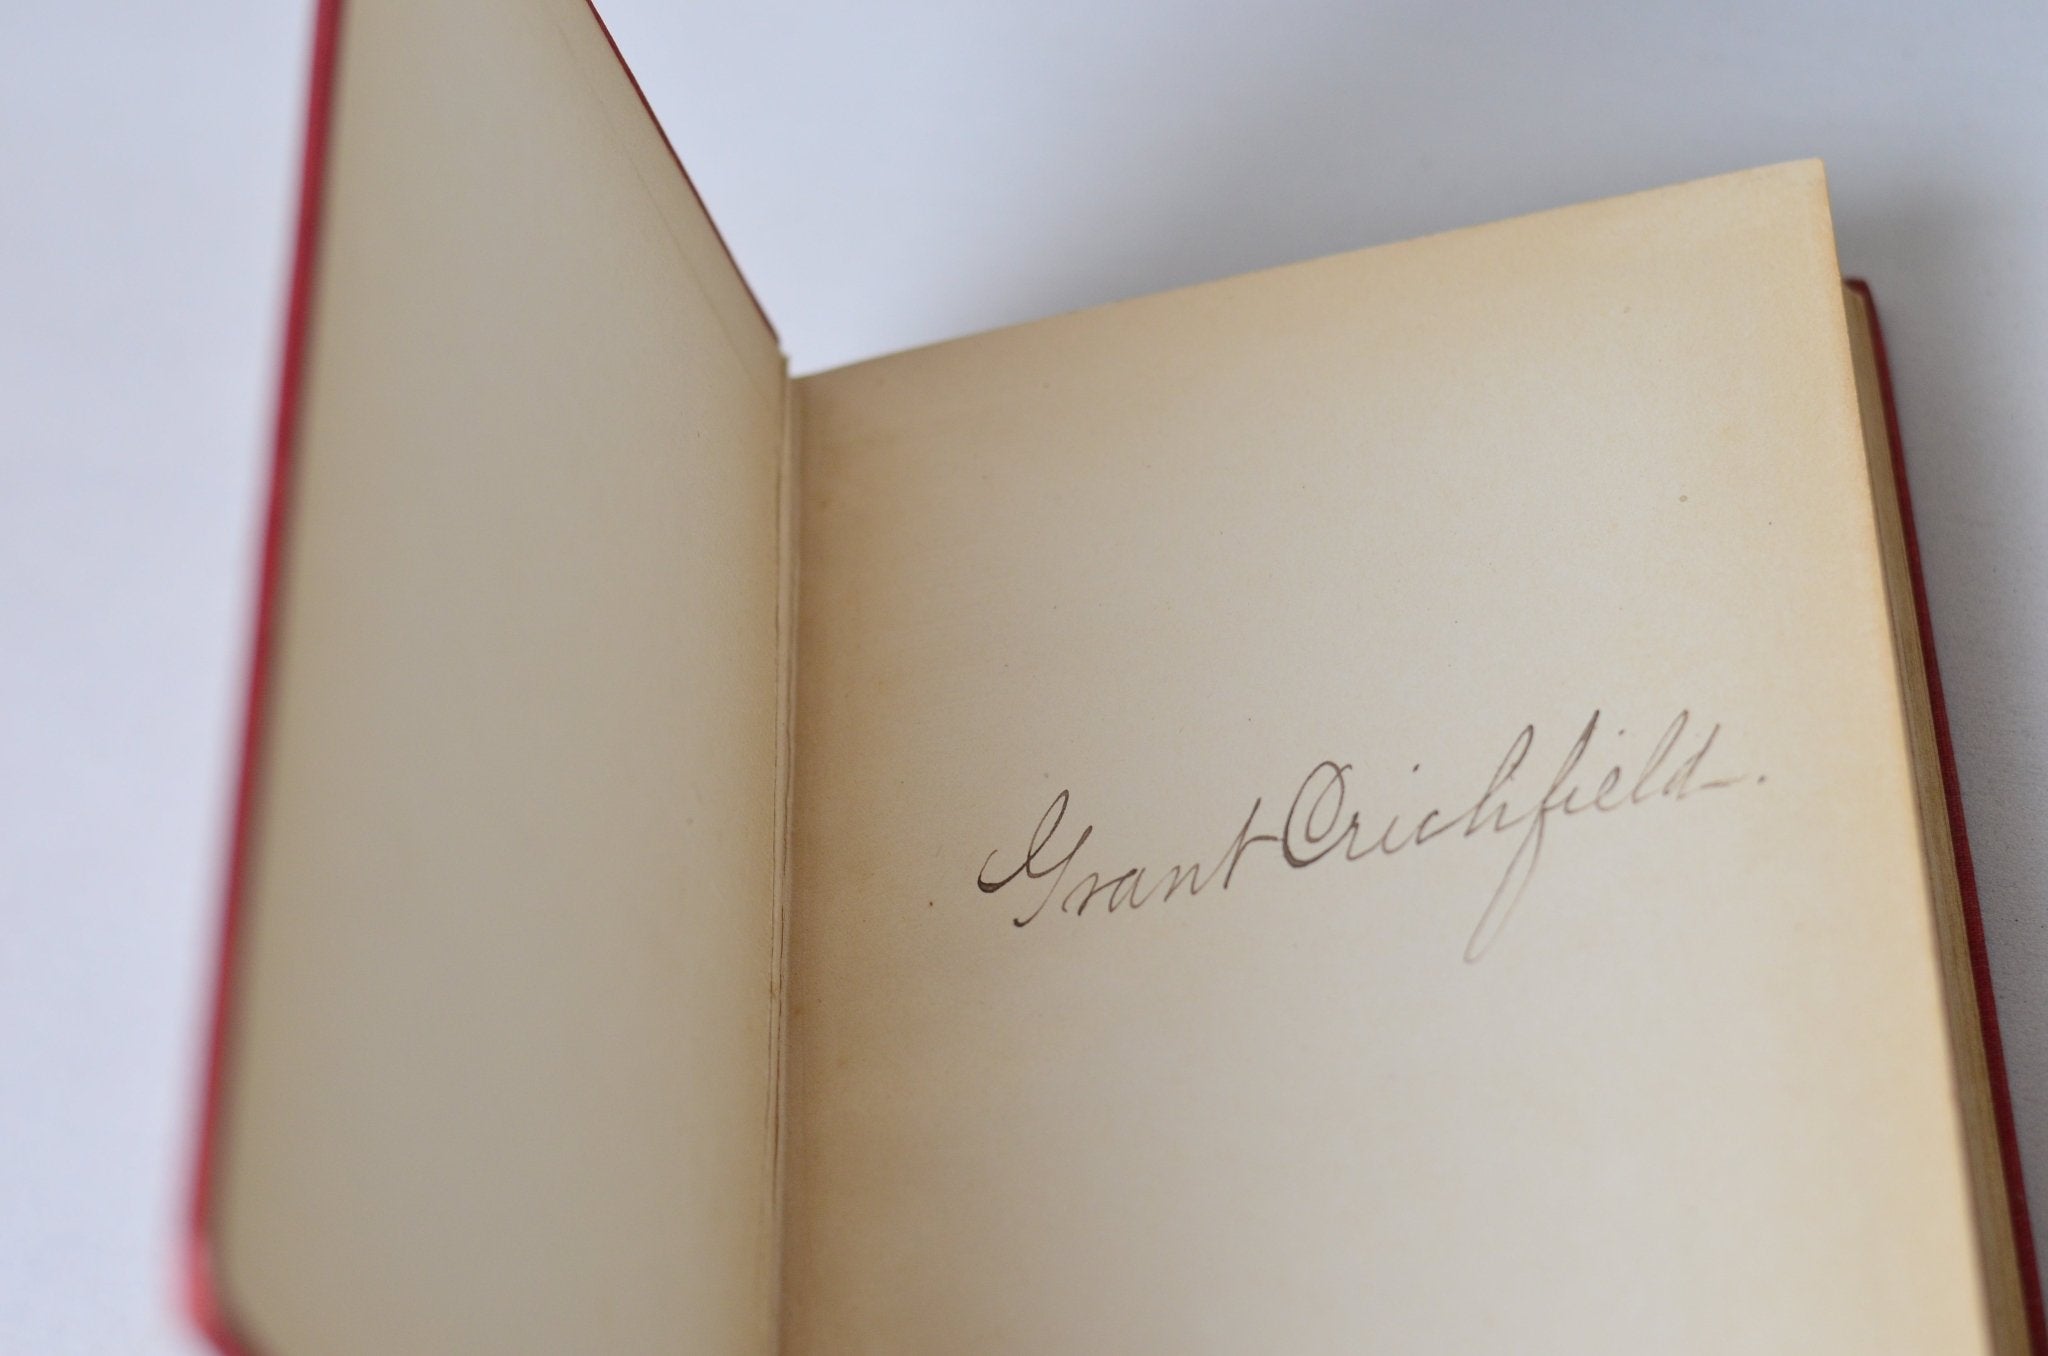 Grant Crichfield.